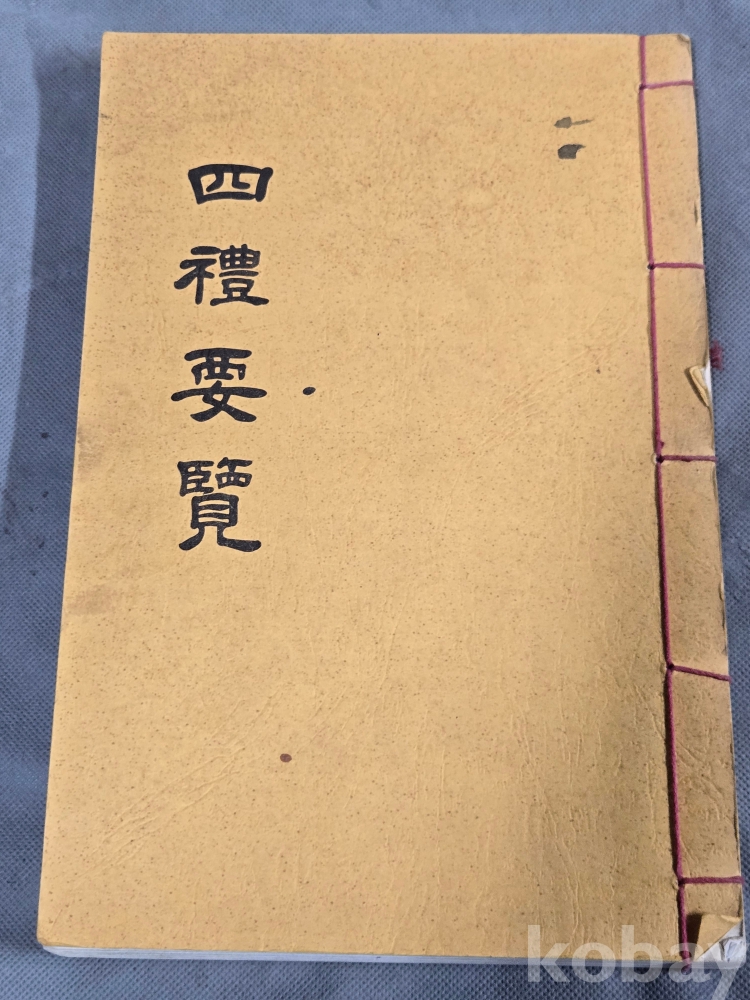 四禮要覽
kobay